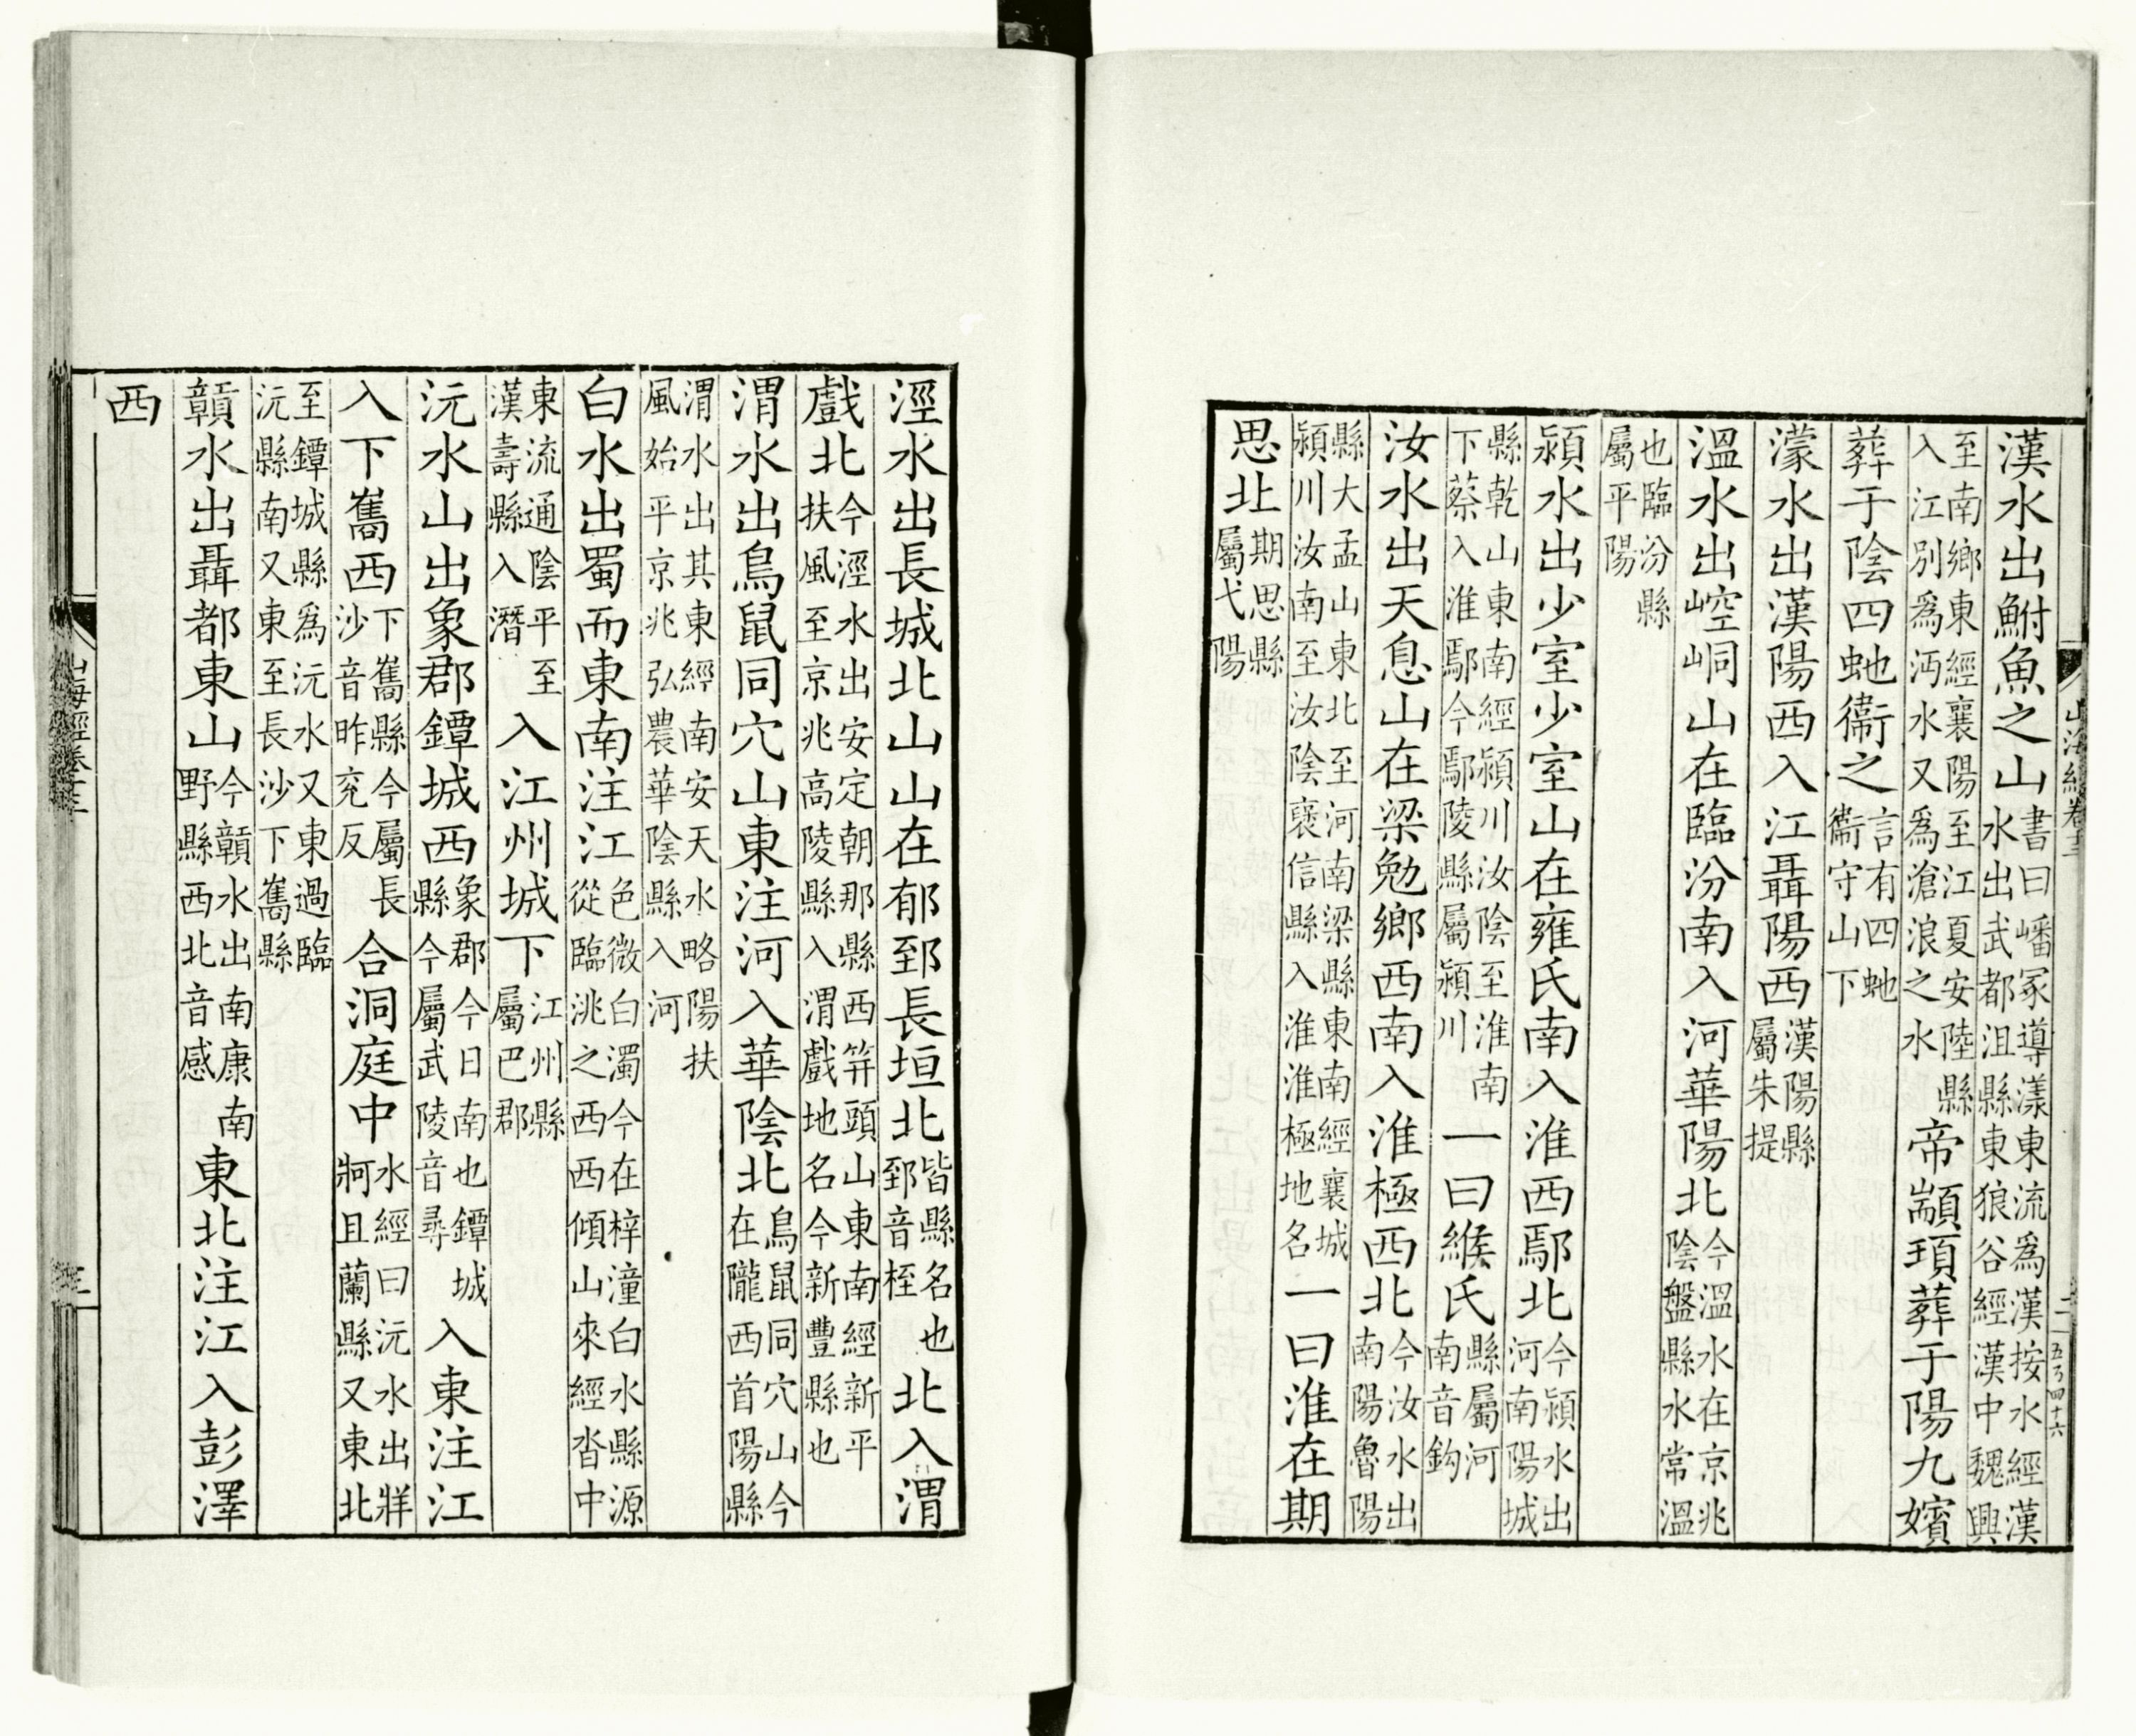 漢水出鮒魚之山書曰嶓冢導漾東流爲漢按水經漢水出武都沮縣東狼谷經漢中魏興
至南鄉東經襄陽至江夏安陸縣入江別爲沔水又爲滄浪之水帝顓頊葬于陽九嬪
葬于陰四虵衞之言有四虵衞守山下
濛水出漢陽西入江聶陽西漢陽縣屬朱提
溫水出崆峒山在臨汾南入河華陽北今溫水在京兆陰盤縣水常溫
也臨汾縣屬平陽
潁水出少室少室山在雍氏南入淮西鄢北今潁水出河南陽城
縣乾山東南經潁川汝陰至淮南下蔡入淮鄢今鄢陵縣屬潁川一曰緱氏縣屬河南音鈎
汝水出天息山在梁勉鄉西南入淮極西北今汝水出南陽魯陽
縣大孟山東北至河南梁縣東南經襄城潁川汝南至汝陰襃信縣入淮淮極地名一曰淮在期
思北期思縣屬弋陽
涇水出長城北山山在郁郅長垣北皆縣名也郅音桎北入渭
戲北今涇水出安定朝那縣西笄頭山東南經新平扶風至京兆高陵縣入渭戲地名今新豐縣也
渭水出鳥鼠同穴山東注河入華陰北鳥鼠同穴山今在隴西首陽縣
渭水出其東經南安天水略陽扶風始平京兆弘農華陰縣入河
白水出蜀而東南注江色微白濁今在梓潼白水縣源從臨洮之西西傾山來經沓中
東流通陰平至漢壽縣入潛入江州城下江州縣屬巴郡
沅水山出象郡鐔城西象郡今日南也鐔城縣今屬武陵音尋入東注江
入下雋西下雋縣今屬長沙音昨兖反合洞庭中水經曰沅水出牂牁且蘭縣又東北
至鐔城縣爲沅水又東過臨沅縣南又東至長沙下雋縣
贛水出聶都東山今贛水出南康南野縣西北音感東北注江入彭澤
西
山海經卷十三
三
山海經卷十三
二